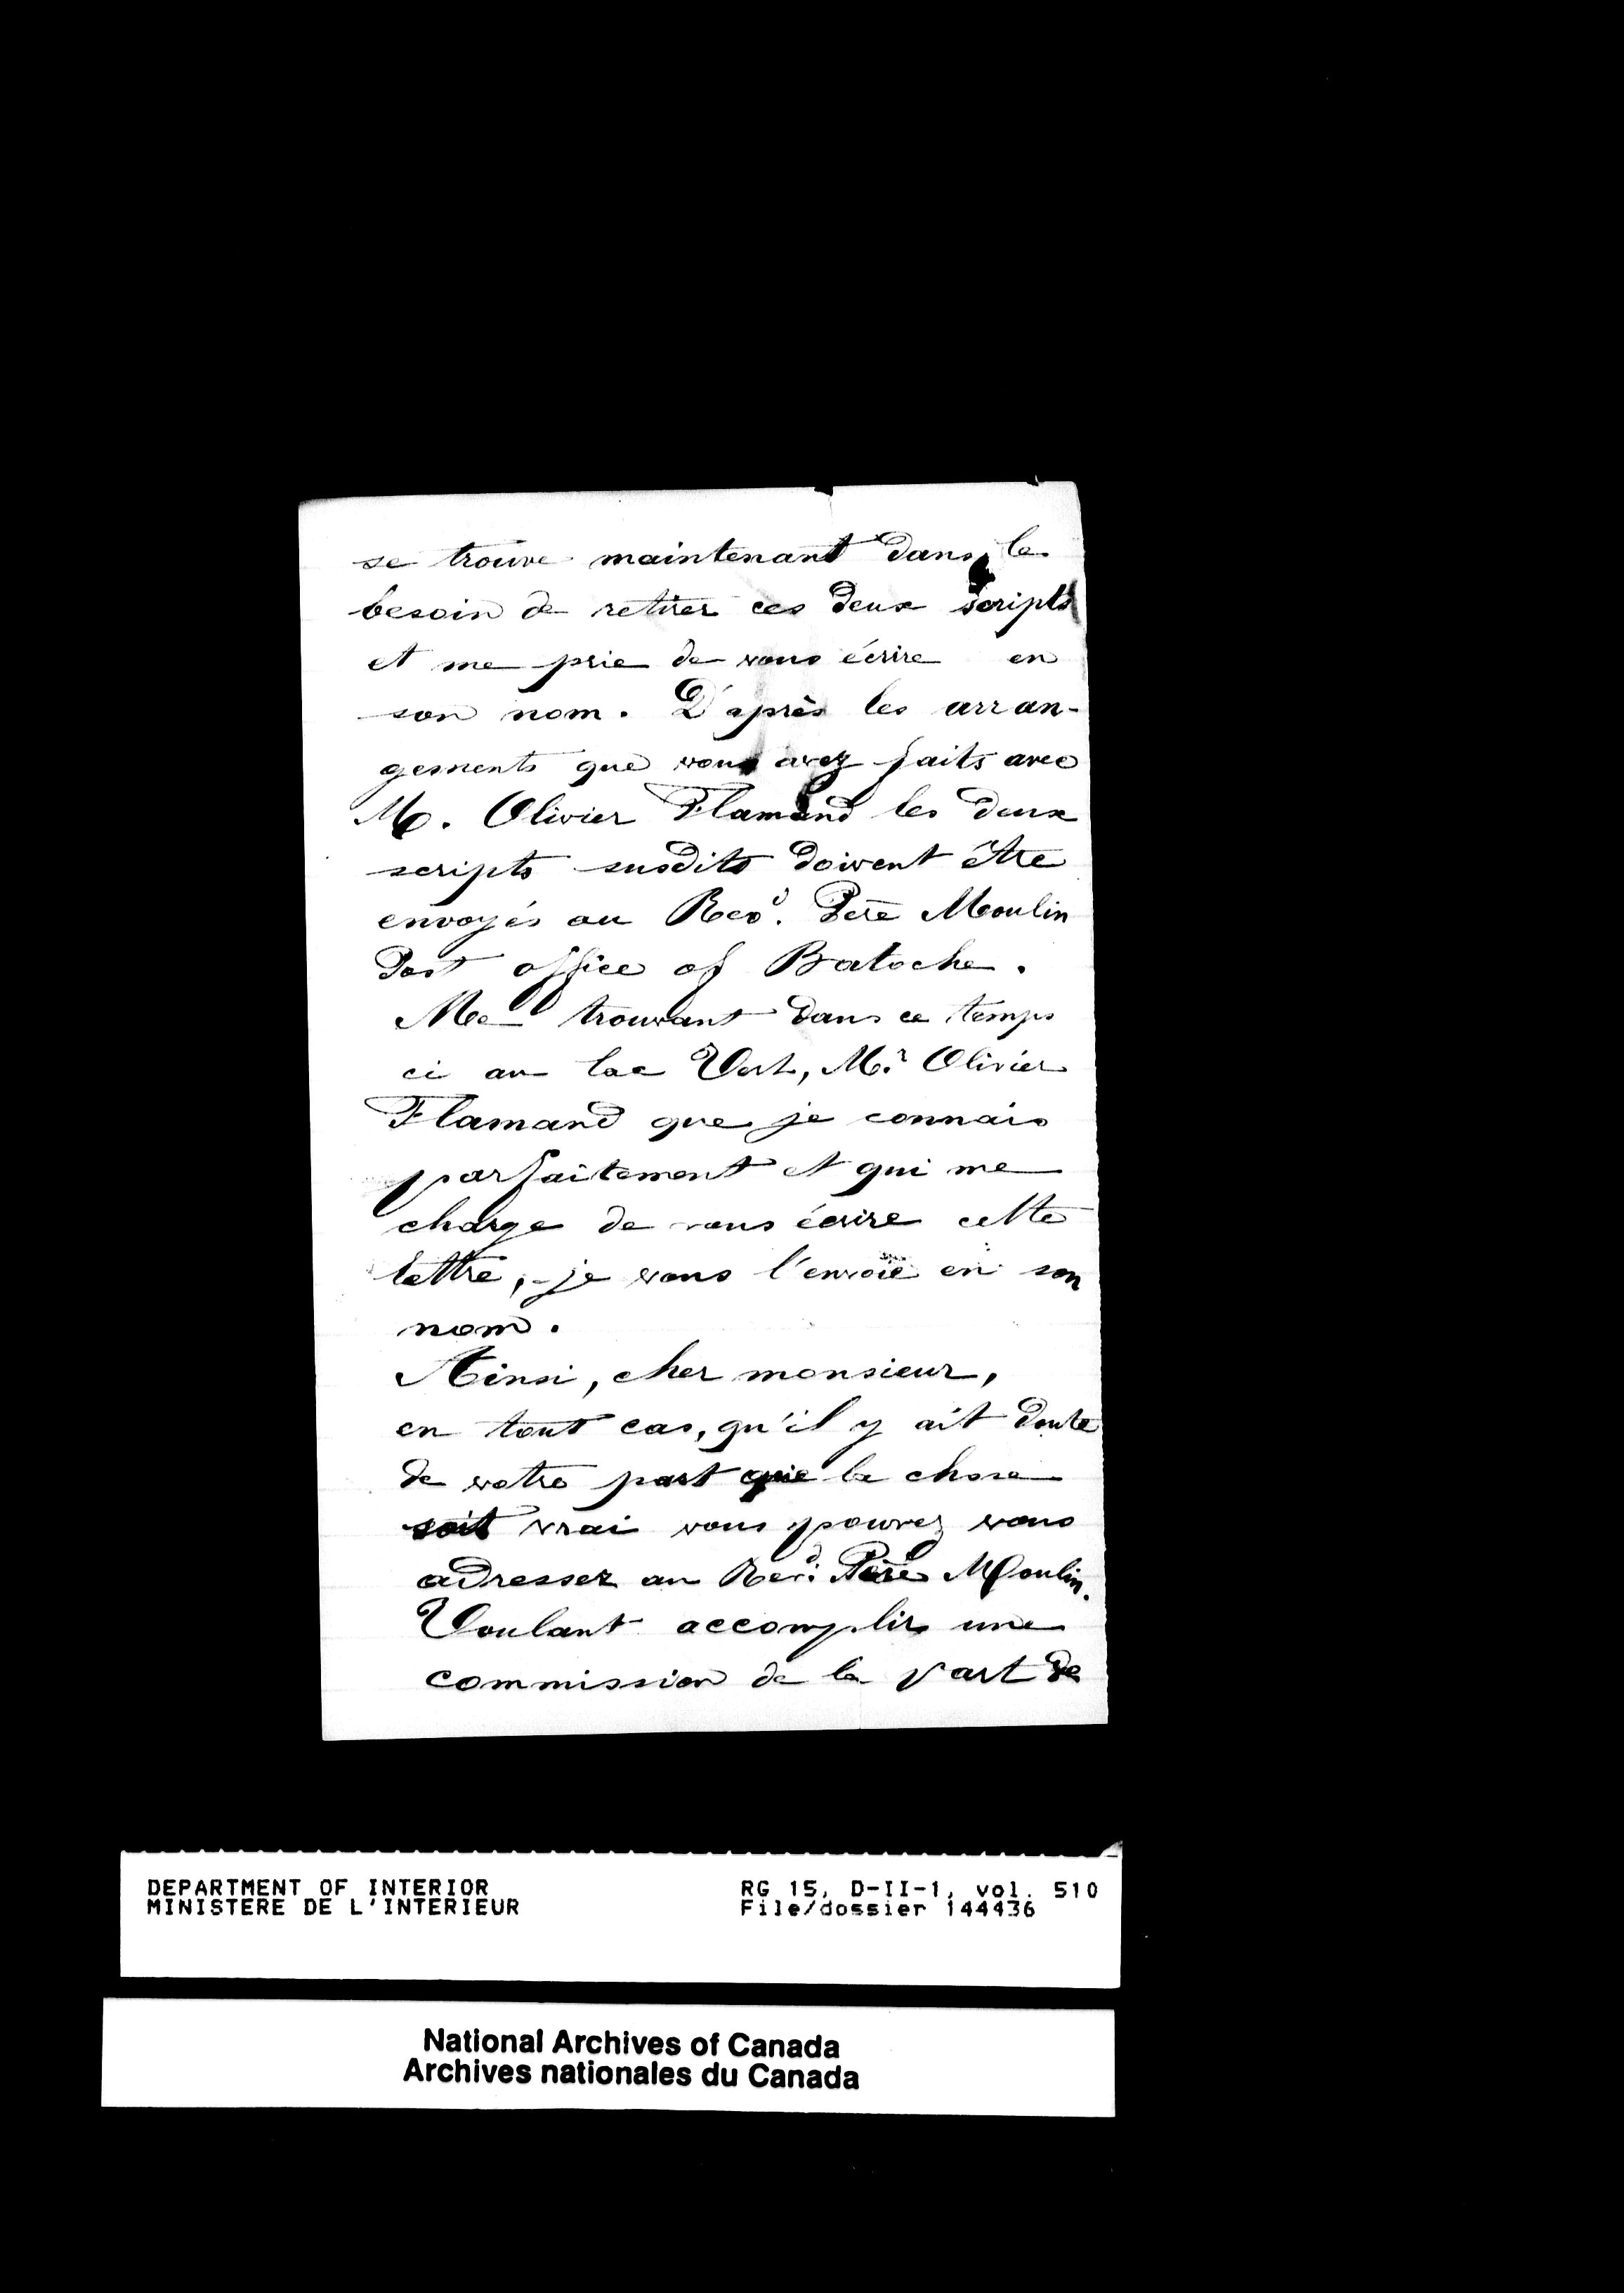 se trouve maintenant dans le
besoin de retirer ces deux scripts
et me prie de vous écrire en
son nom. D'après les arran-
gements que vous avez faits avec
M. Olivier Flamand les deux
scripts susdits doivent être
envoyés au Revd. Père Moulin
Post office of Batoche.
Me trouvant dans ce temps
ci au lac Vert, Mr. Olivier
Flamand que je connais
parfaitement et qui me
charge de vous écrire cette
lettre, je vous l'envoie en son
nom.
Ainsi, cher monsieur,
en tout cas, qu'il y ait doute
de votre part que la chose
soit vrai vous pouvez vous
adresser au Revd. Père Moulin.
Voulant accomplir une
commission de la part de
DEPARTMENT OF INTERIOR RG 15, D-II-1, vol. 510
MINISTERE DE L'INTERIEUR File/dossier 144436
National Archives of Canada
Archives nationales du Canada